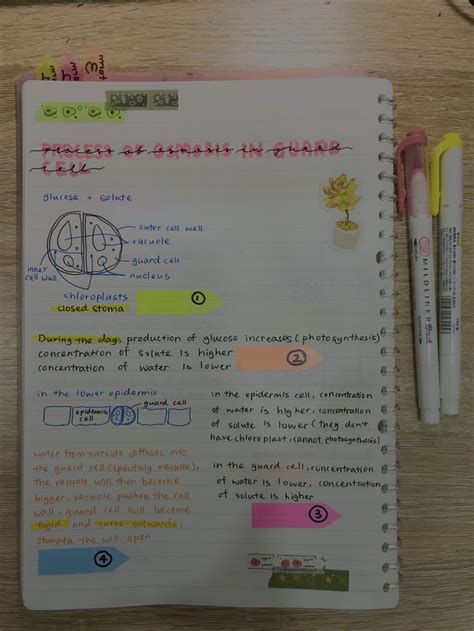 PROCESS OF OSMOSIS IN GUARD
CELL
glucose = solute
outer cell wall
vacuole
guard cell
nucleus
inner
cell wall
chloroplasts
closed stoma
1
During the day, production of glucose increases (photosynthesis)
concentration of solute is higher
concentration of water is lower
2
in the lower epidermis:
guard cell
epidermis
cell
in the epidermis cell, concentration
of water is higher, concentration
of solute is lower (they don't
have chloroplast, cannot photosynthesis)
water from outside diffuses into
the guard cell (specificly vacuole),
the vacuole will then become
bigger, vacuole pushes the cell
wall, guard cell will become
turgid and curve outwards,
stomata the will open
4
in the guard cell, concentration
of water is lower, concentration
of solute is higher
3
MILDLINER